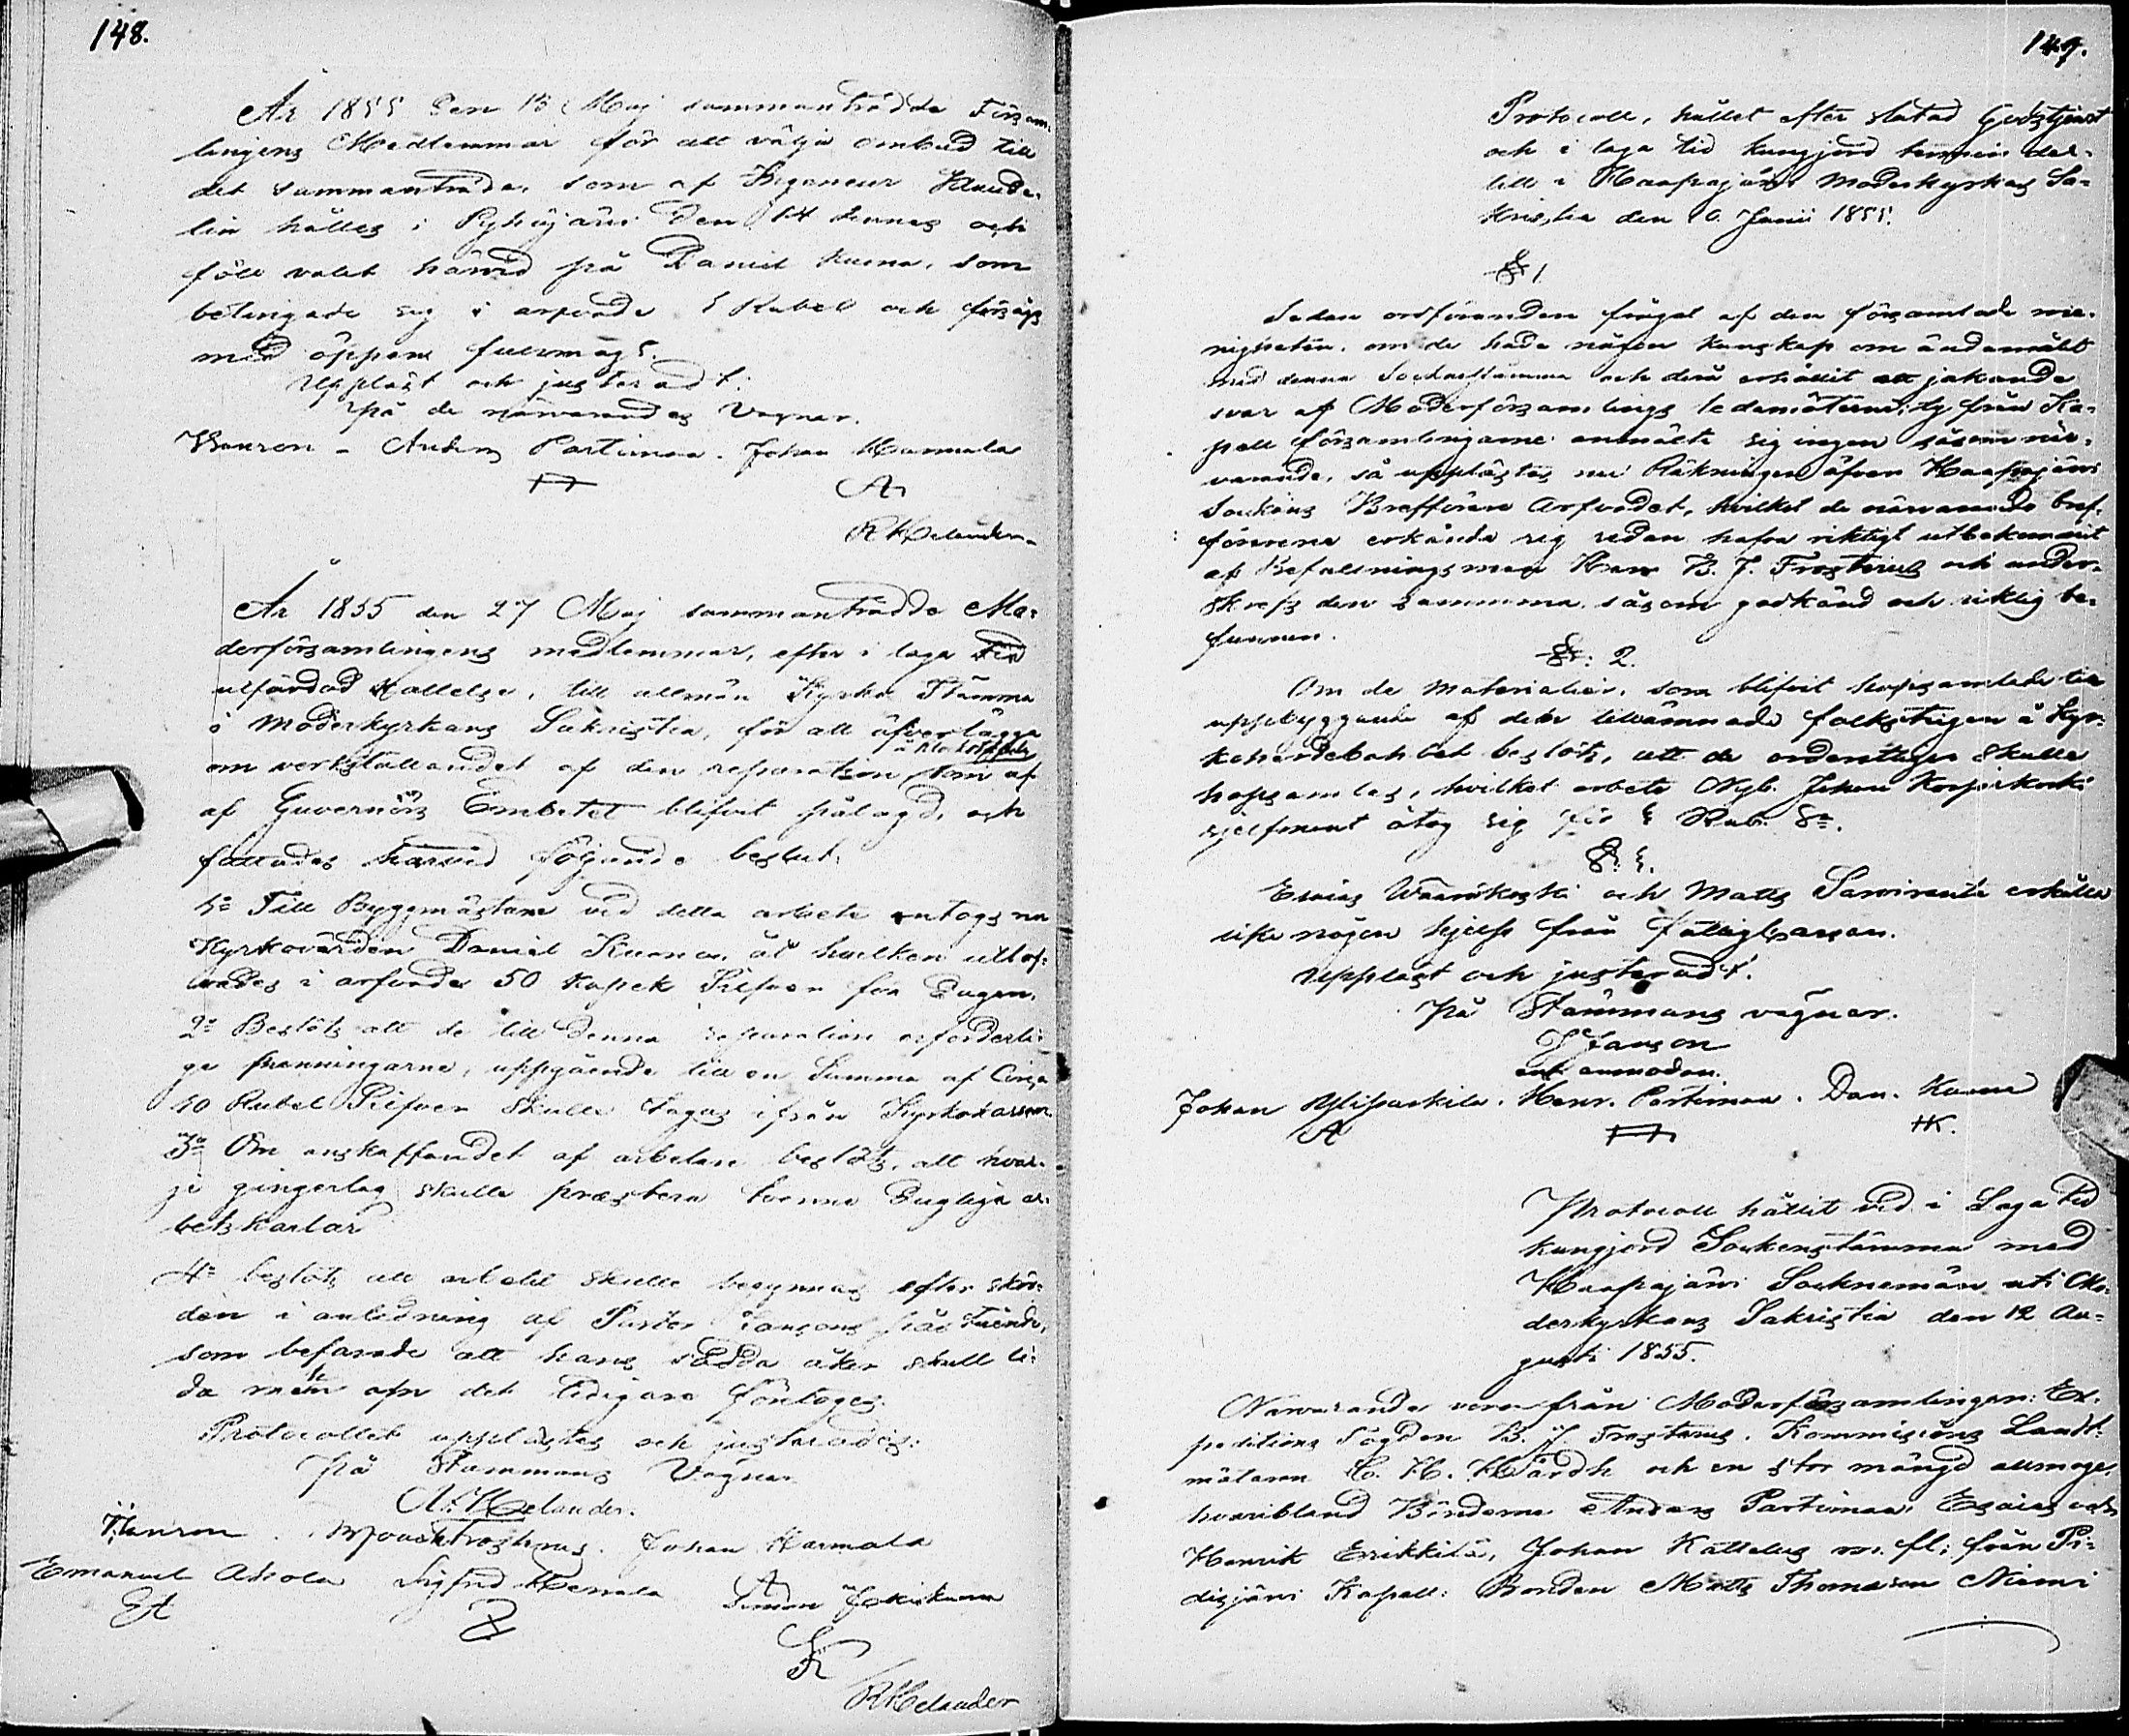 148.
År 1855 den 13 Maj sammanträdde Försam-
lingens Medlemmar för att välja ombud till
det sammanträde, som af Ingeneur
lin hålles i Pyhäjärvi den 14 dennes och
föll valet härvid på Daniel Kuona, som
betingade sig i arfvode 5 Rubel och försågs
med öppen fullmagt.
Uppläst och justeradt:
På de närvarandes Vägnar.
Anders Partimaa. Johan Karmala
A
Helander
År 1855 den 27 Maj sammanträdde Mo-
derförsamlingens medlemmar, efter i laga tid
utfärdad Kallelse, till allmän Kyrko Stämma
i Moderkyrkans Sakristia, för att öfverlägga
om verkställandet af den reparation, som af
af Guvernörs Embetet blifvit pålagd, och
fattades härvid följande beslut:
1º Till Byggmästare vid detta arbete antogs nu
Kyrkovärden Daniel Kuona, åt hvilken utlof-
vades i arfvode 50 Kopek Silfver för Dagen.
2º Beslöts att de till denna reparation erforderli-
ga penningarne, uppgående till en Summa af Circa
10 Rubel Silfver skulle tagas ifrån Kyrkokassan
3º Om anskaffandet af arbetare beslöts, att hvar-
je gingerlag skulle præstera tvenne Dugliga ar-
betskarlar
4º beslöts att arbetet skulle begynnas efter skör-
den i anledning af Pastor Jansons påstående,
som befarade att hans sådda åker skull li-
da mehn ofn det tidigare företoges.
Protocollet upplästes och justerades:
På Stämmans Vägnar
Helander.
Johan Karmala
Emanuel Ahola Sigfrid Simon
EA
SK
Helander
149.
Protocoll, hållet efter slutad Gudstjenst
och i laga tid kungjord termin der-
till i Haapajärvi Moderkyrkas Sa-
kristia den 10 Junii 1855.
§ 1.
Sedan ordföranden frågat af den församlade me-
nigheten, om de hade någon kunskap om ändamålet
med denna Sockenstämma och derå erhållit ett jakande
svar af Moderförsamlings ledamöterne; ty från Ka-
pell församlingarne anmälte sig ingen såsom när-
varande, så upplästes nu Räkningen öfver Haapajärvi
Sockens Brefförare Arfvodet, hvilket de närvarande bref-
förarena erkände sig redan hafva riktigt utbekommit
af Befallningsman Herr B. J. Frosterus och under-
skrefs den samma, såsom godkänd och riktig be-
funnen.
§: 2.
Om de Materialier, som blifvit hopsamlade till
uppbyggande af den tillämnade folkstugan å Kyr-
koherdebohlet beslöts, att de ordentligen skulle
hopsamlas, hvilket arbete Nyb. Johan Korpikoski
sjelfmant åtog sig för Rub. Sr.
Esaias och Matts Sarviranta erhålla
icke någon hjelp från fattigkassan.
Upplast och justeradt.
På Stämmans vägnar.
J Janson
enl. anmodan.
Johan Ylipaakila. Henr. Partimaa. Dan. Kuona
A
HK.
Protocoll hållit vid i Laga tid
kungjord Sockenstämma med
Haapajärvi Socknemän uti Mo-
derkyrkans Sakristia den 12 Au-
gusti 1855.
Närvarande voro från Moderförsamlingen: Ex-
peditions Fogden B. J. Frosterus, Kommissions Landt-
mätaren C. H. Hårdh och en stor mängd allmoge,
hvaribland Bönderne Anders Partimaa, Esaias och
Henrik Erikkilä, Johan Kattelus m. fl; från Pi-
disjärvi Kapell: Bonden Matts Thomasson Niemi